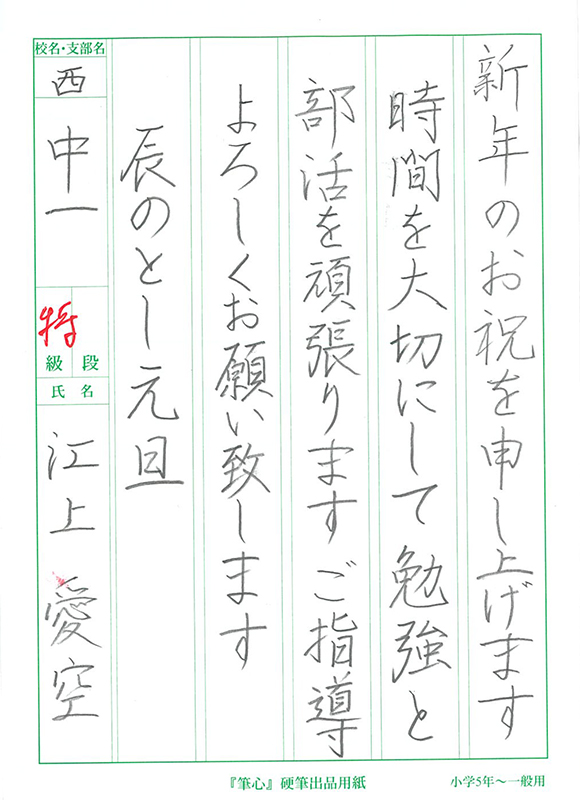 新年のお祝を申し上げます
時間を大切にして勉強と
部活を頑張りますご指導
よろしくお願い致します
辰のとし元旦
校名・支部名
西
中一
特
級 段
氏 名
江上 愛空
『筆心』硬筆出品用紙
小学5年〜一般用